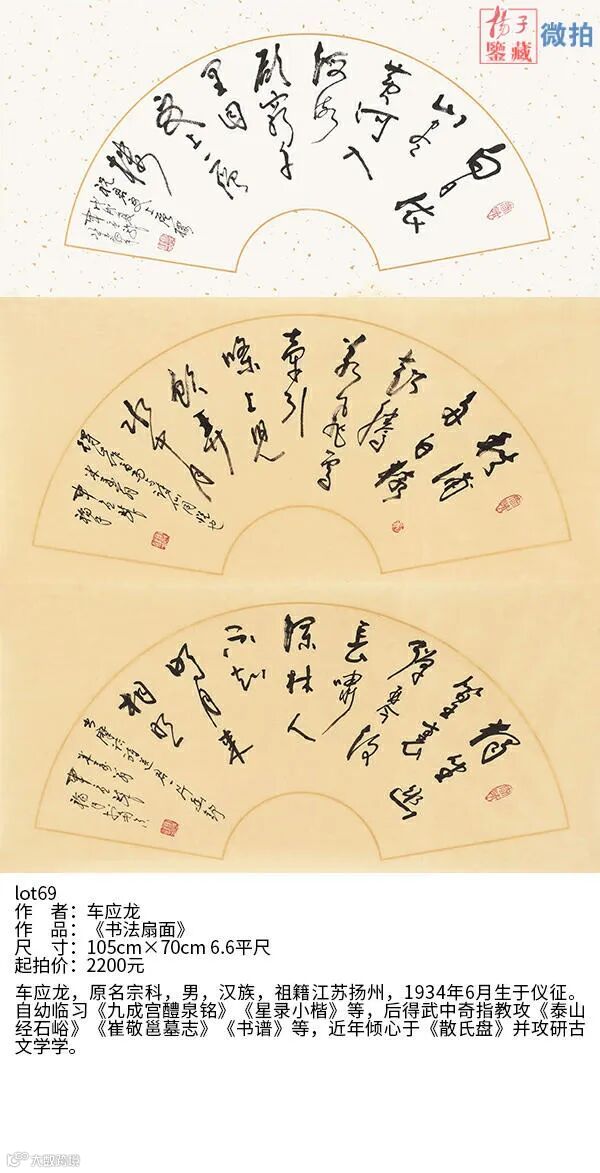 杨子
鉴藏
微拍
白日依
山尽
黄河入
海流
欲穷千
里目
更上一层
楼
秋浦
多白猿
超腾
若飞雪
牵引
條上兒
飲弄
水中月
独坐
幽篁里
弹琴复
長啸
深林人
不知
明月来
相照
lot69
作 者：车应龙
作 品：《书法扇面》
尺 寸：105cm×70cm 6.6平尺
起拍价：2200元
车应龙，原名宗科，男，汉族，祖籍江苏扬州，1934年6月生于仪征。
自幼临习《九成宫醴泉铭》《星录小楷》等，后得武中奇指教攻《泰山
经石峪》《崔敬邕墓志》《书谱》等，近年倾心于《散氏盘》并攻研古
文字学。